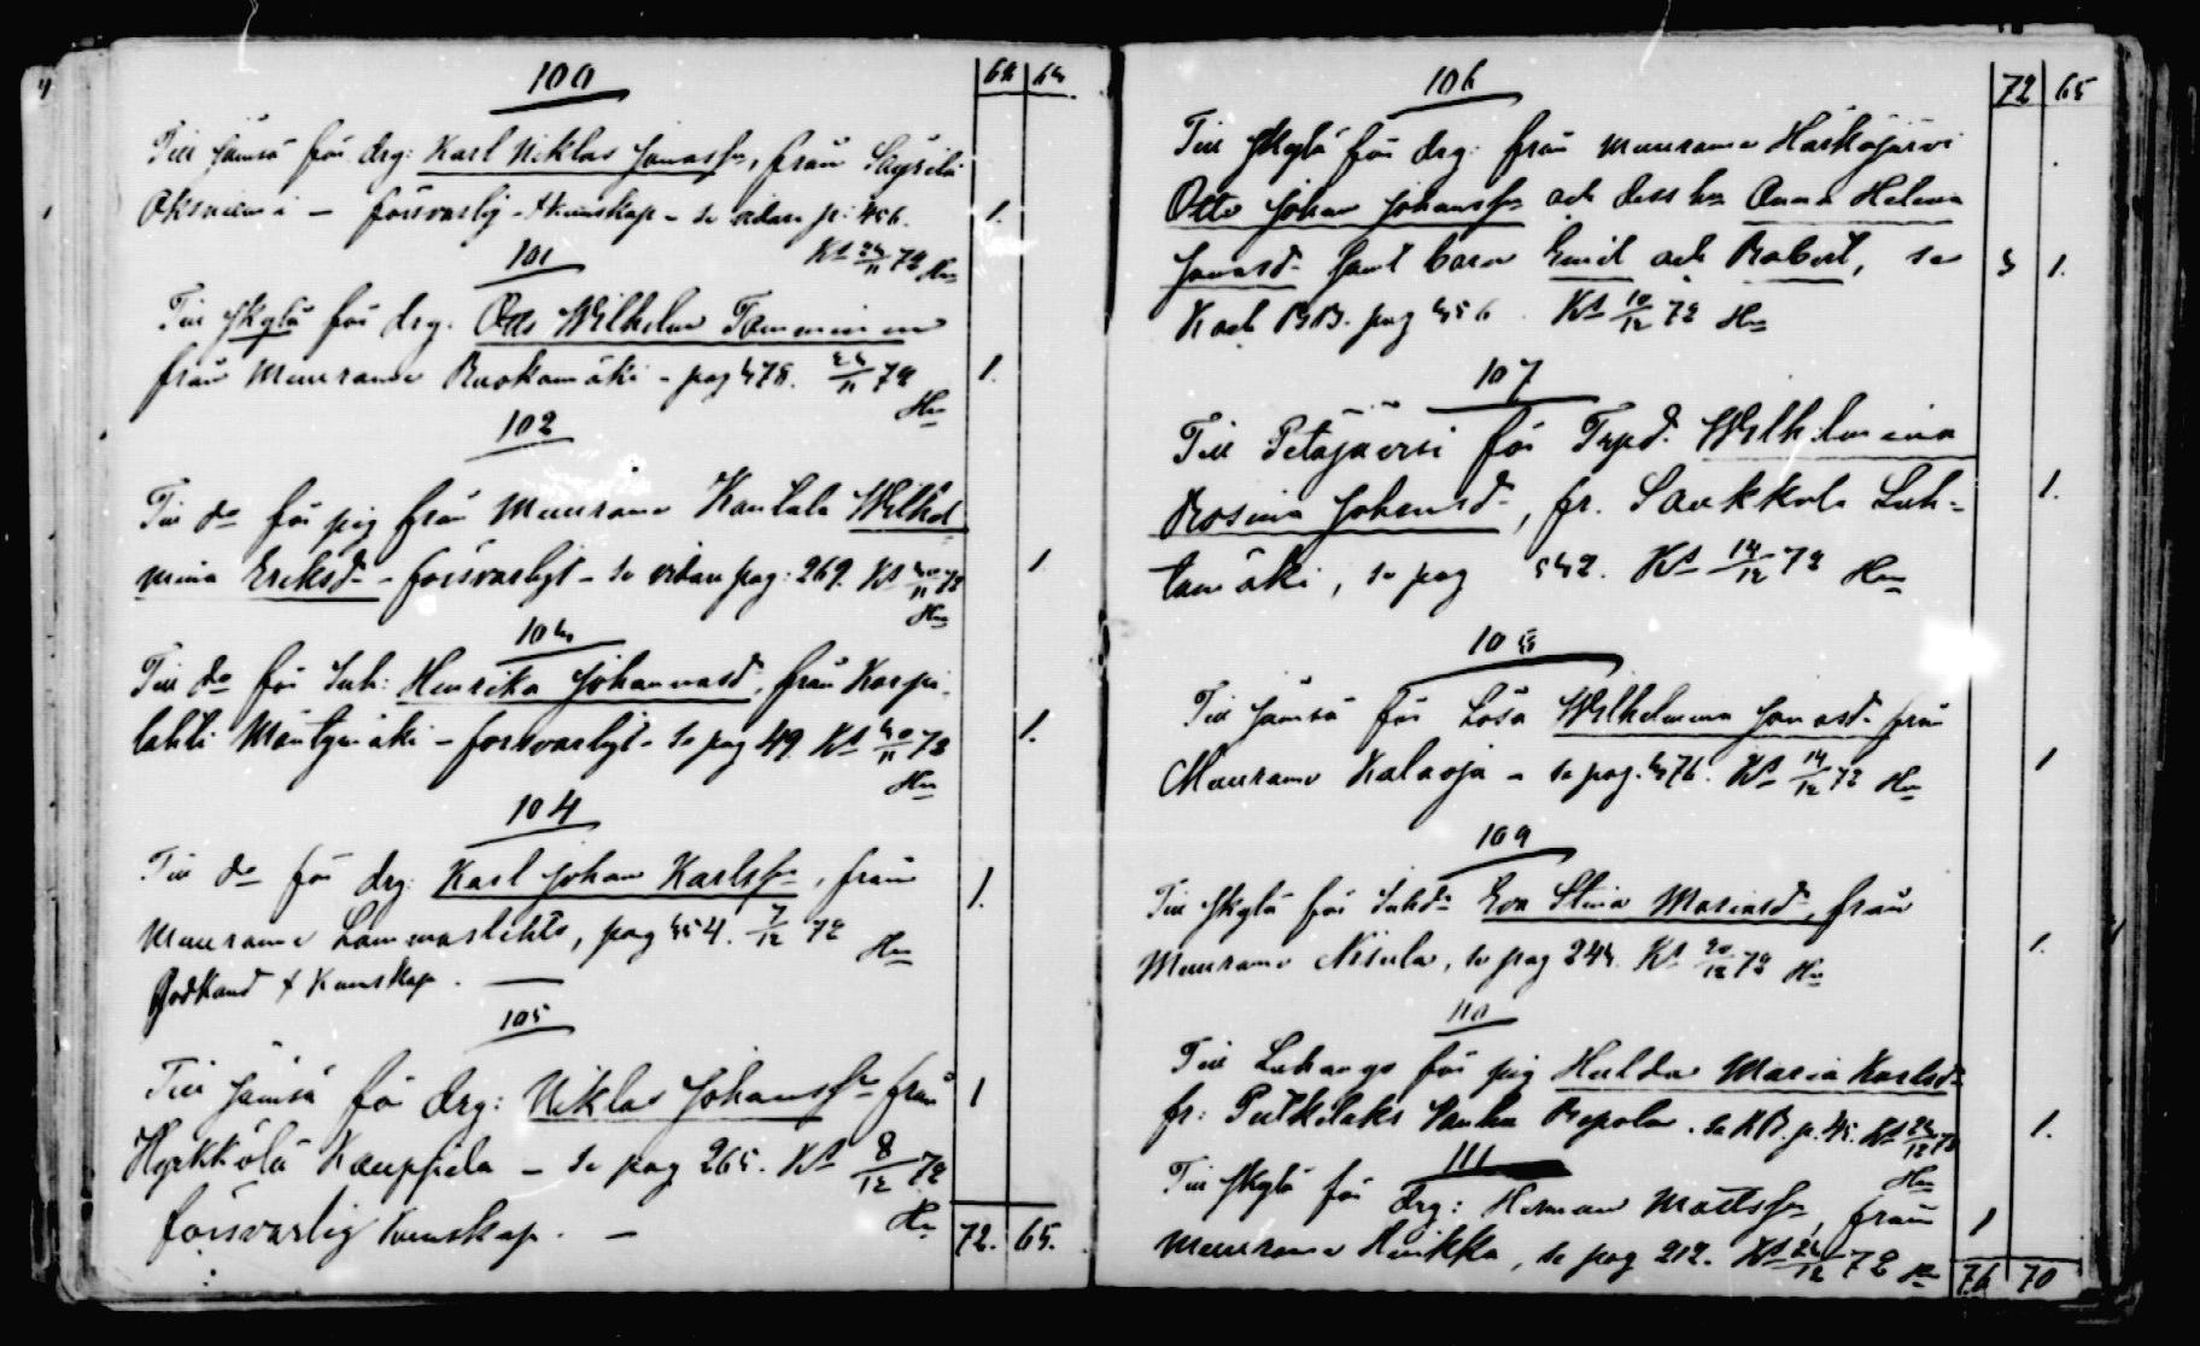 100
68 63
Till Jämsä för drg: Karl Niklas Jonasson, från Säyrilä
Oksniemi – försvarlig kunskap – se vidare p: 456. 1.
Kst 23/11 72 Hn
101
Till Jkylä för drg. Otto Wilhelm Tamminen
från Muurame Ruokomäki – pag 378. 23/11 72 1.
Hn
102
Till do för pig från Muurame Kantala Wilhel
mina Eriksd – försvarligt – se vidare pag: 269. Kst 30/11 72 1
Hn
103
Till do för Inh: Henrika Johannasd, från Korpi-
lahti Mäntymäki – försvarligt – se pag 49. Kst 30/11 72 1.
Hn
104
Till do för drg: Karl Johan Karlsson, från 1.
Muurame Lammaslehto, pag 354. 7/12 72
Hn
Godkänd Kunskap. —
105
Till Jämsä för drg: Niklas Johansson från 1
Hyrkkölä Kauppila – se pag 265. Kst 8/12 72
försvarlig kunskap. – Hn
72. 65.
106
72 65
Till Jkylä för drg: från Muurame Härkäjärvi
Otto Johan Johansson och dess h Anna Helena
Jonasd samt barn Emil och Robert, se 3 1.
K och BB. pag 356. Kst 10/12 72 Hn
107
Till Petäjävesi för Wilhelmina
Rosina Johansd, fr. Saukkola Luh- 1.
tamäki, se pag 532. Kst 14/12 72 Hn
108
Till Jämsä för Lösa Wilhelmina Jonasd från
Muurame Kalaoja – se pag. 376. Kst 14/12 72 Hn 1
109
Till Jkylä för Inhd Eva Stina Mariasd, från
Muurame Nisula, se pag 243. Kst 20/12 72 Hn 1.
110
Till Luhango för pig Hulda Maria Karlsd
fr: Putkilaks Vanha Repola. se KB. p. 45. Kst 23/12 72 1.
Hn
111
Till Jkylä för drg: Herman Mattsson, från 1
Muurame Huikko, se pag 212. Kst 23/12 72 Hn
76 70